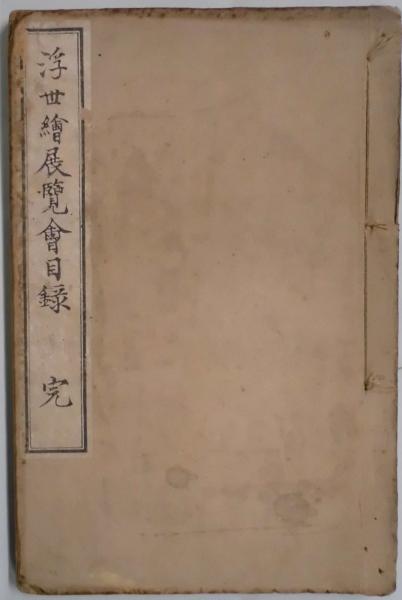 浮世繪展覽會目録　完